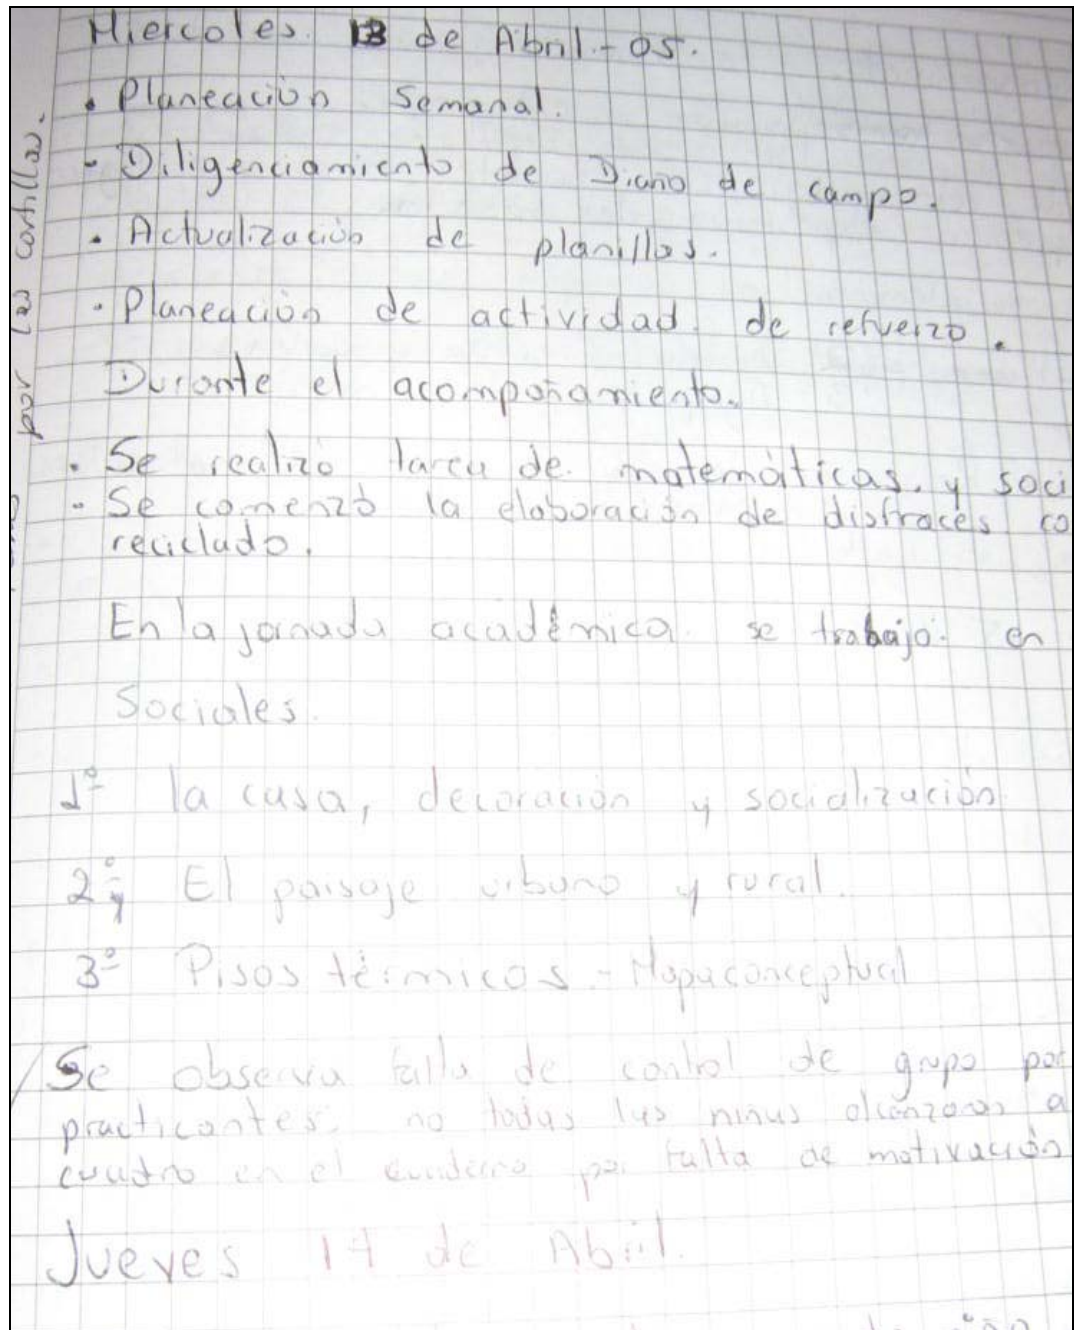 Miercoles. 13 de Abril - 05.
• Planeación Semanal.
- Diligenciamiento de Diario de campo.
• Actualización de planillas.
• Planeación de actividad de refuerzo.
Durante el acompañamiento.
• Se realizo tarea de matemáticas. y soci
- Se comenzó la elaboración de disfraces co
reciclado.
En la jornada académica se trabajo en
Sociales.
1º la casa, decoración y socialización
2º El paisaje urbano y rural.
3º Pisos térmicos - Mapa conceptual
Se observa falta de control de grupo por
practicantes. no todas las niñas alcanzaron a
cuadro en el cuaderno por falta de motivación
Jueves 14 de Abril.
por las cartillas.